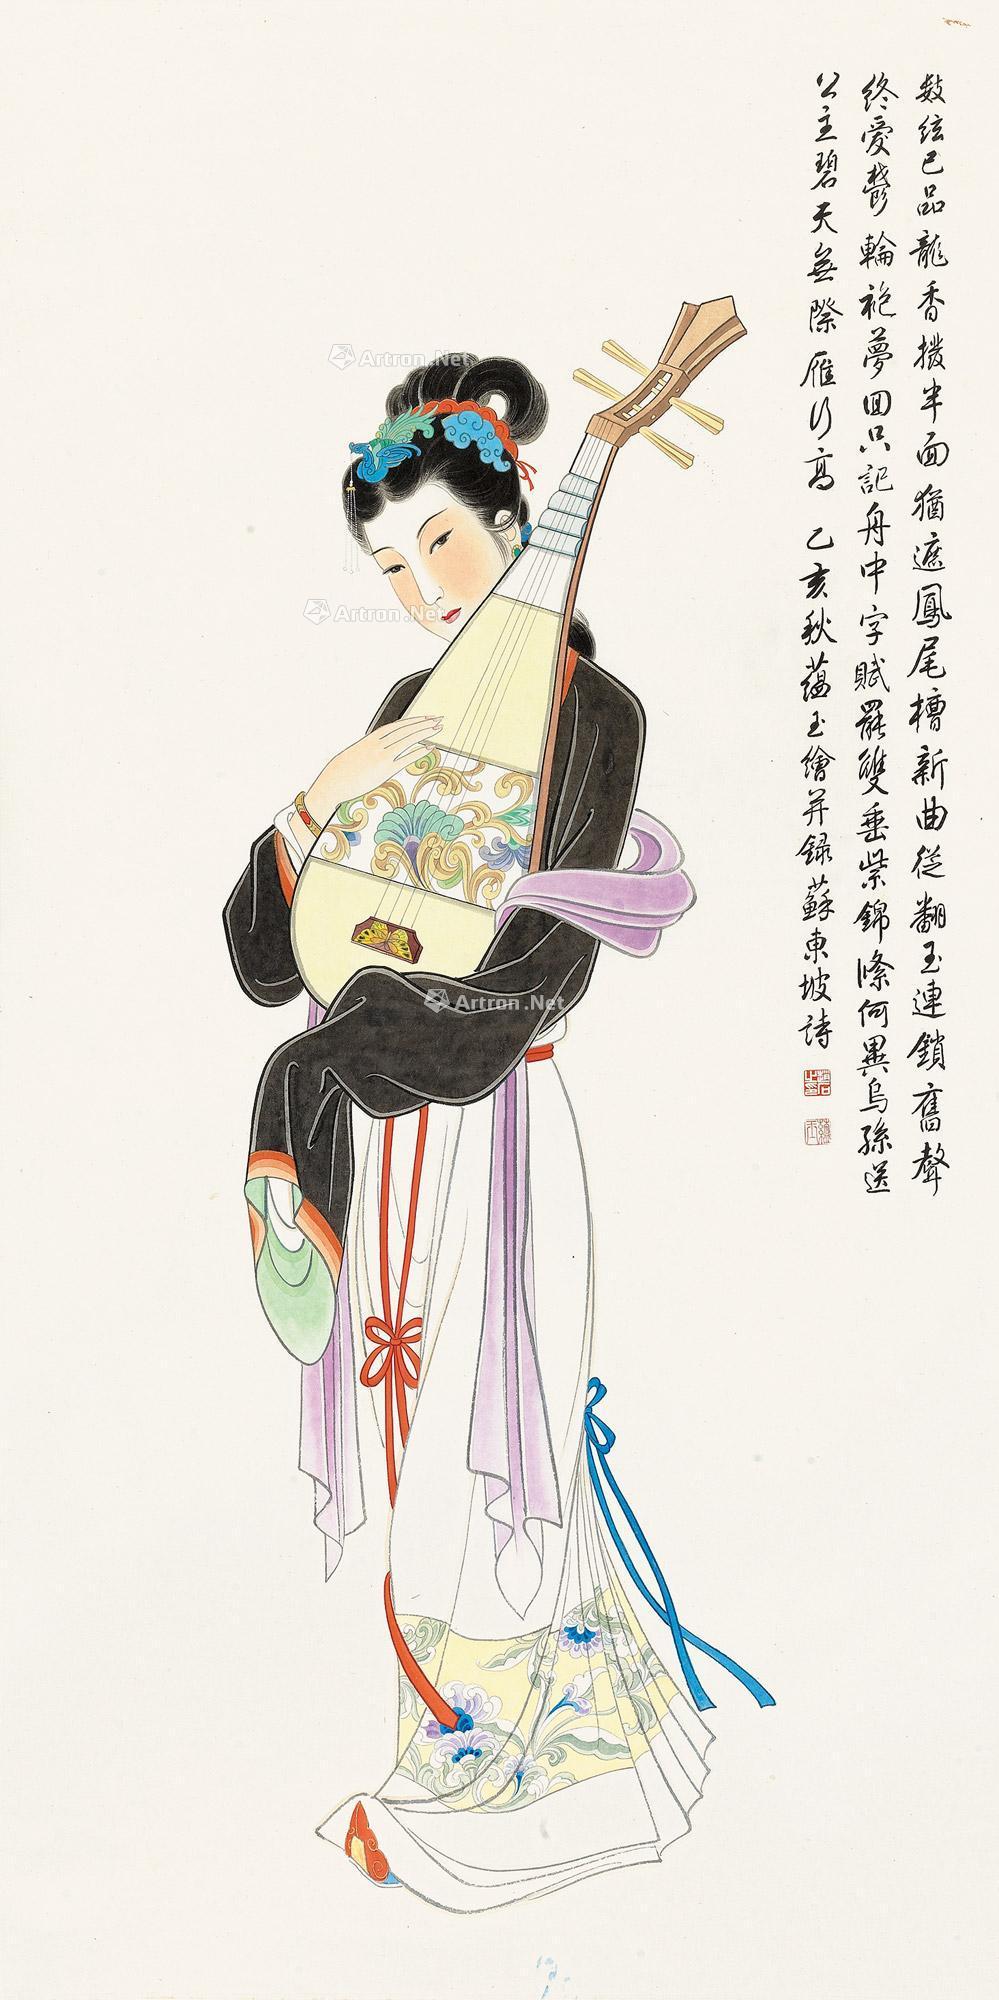 数絃已品龍香撥半面猶遮鳳尾槽新曲從翻玉連鎖舊聲
終愛鬱輪袍夢回只記舟中字賦罷雙垂紫錦絛何異烏孫送
公主碧天無際雁行高 乙亥秋蘊玉繪并録蘇東坡詩
Artron.Net
Artron.Net
Artron.Net